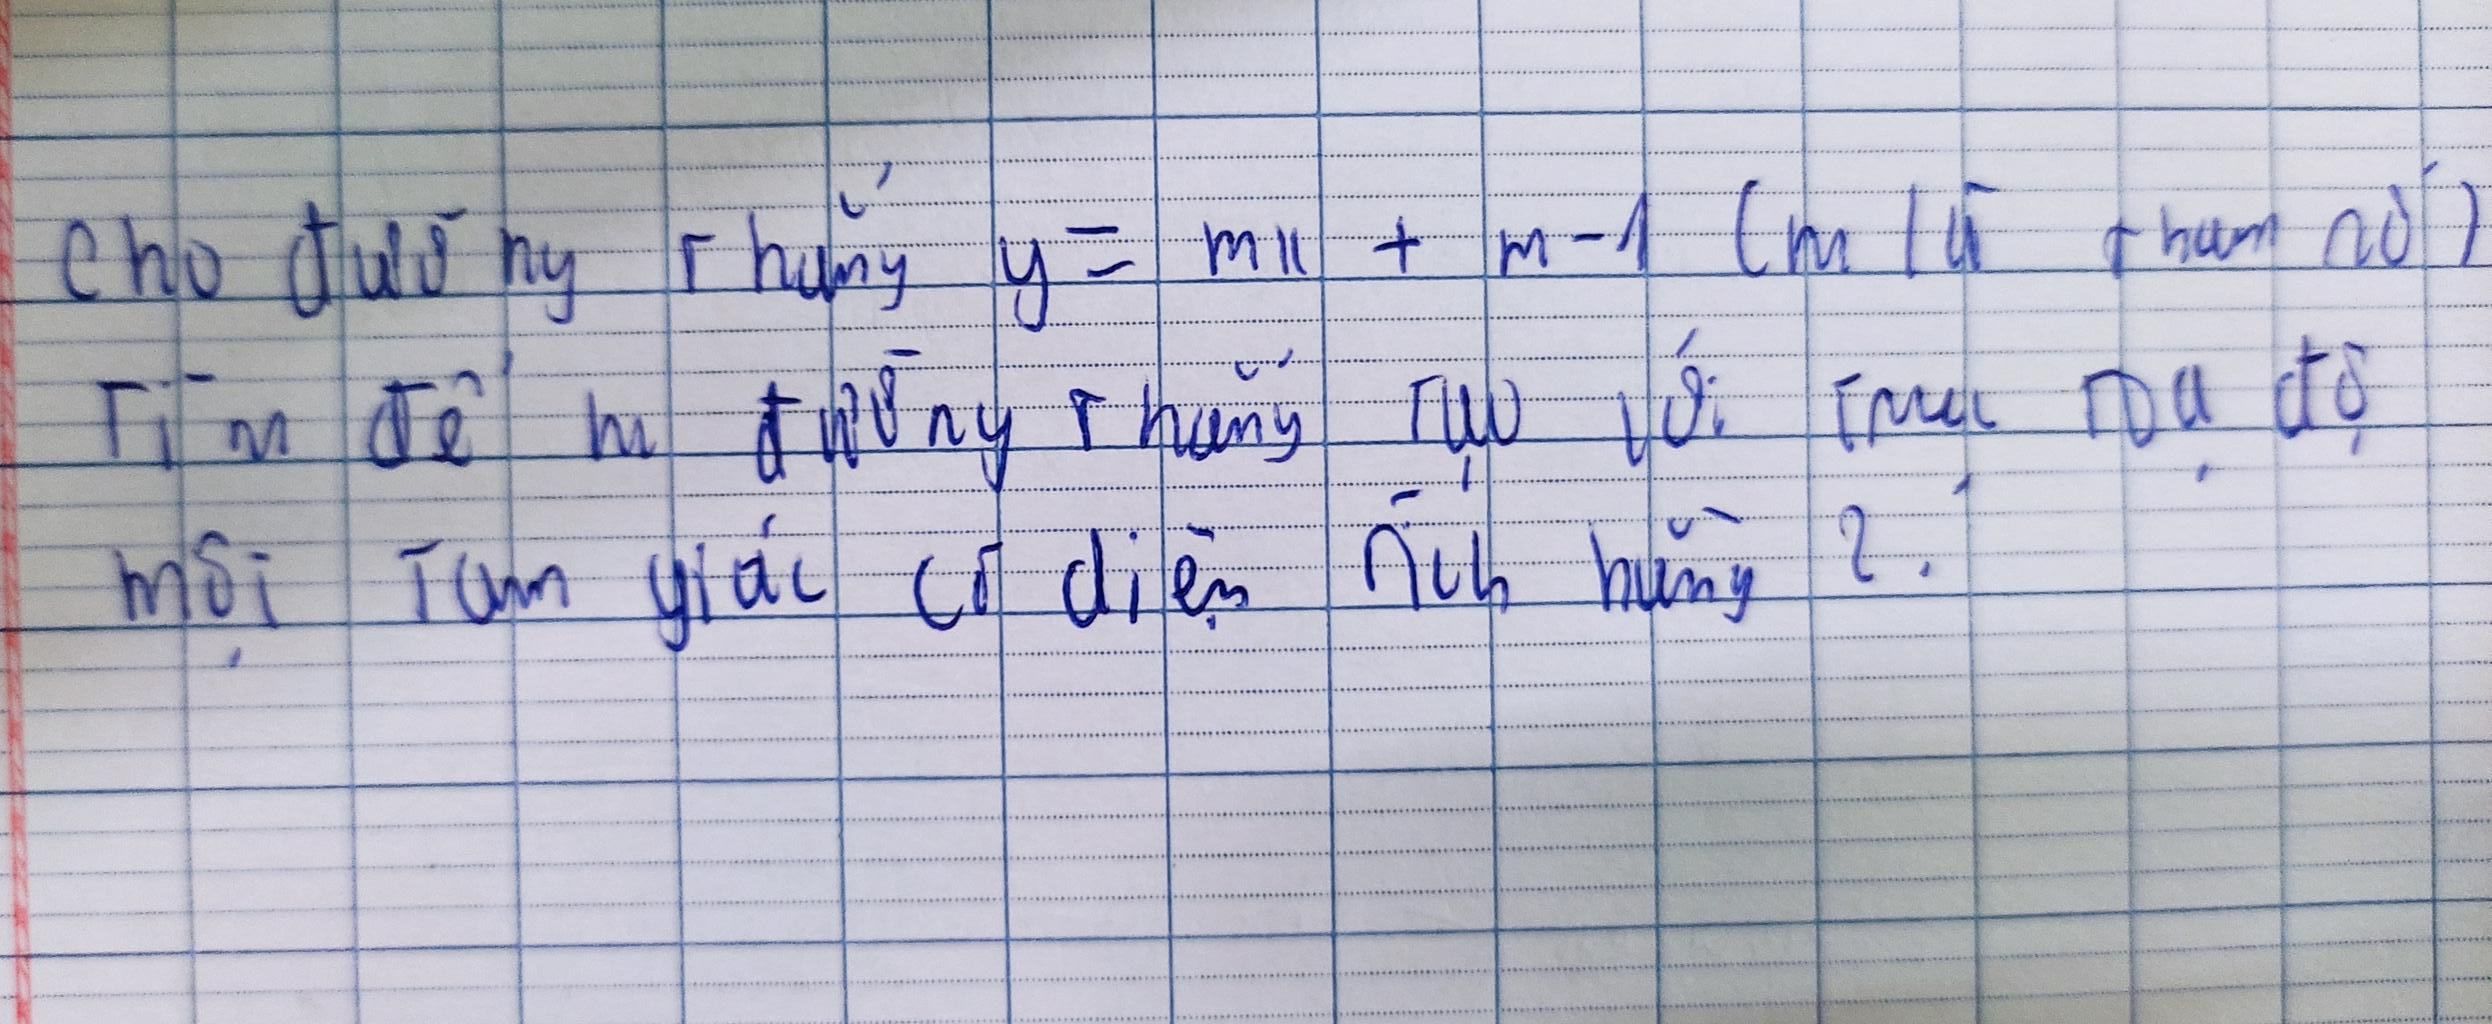 Cho đường thẳng y = mx + m - 1 (m là tham số)
Tìm để m đường thẳng tạo với trục toạ độ
một tam giác có diện tích bằng 2.